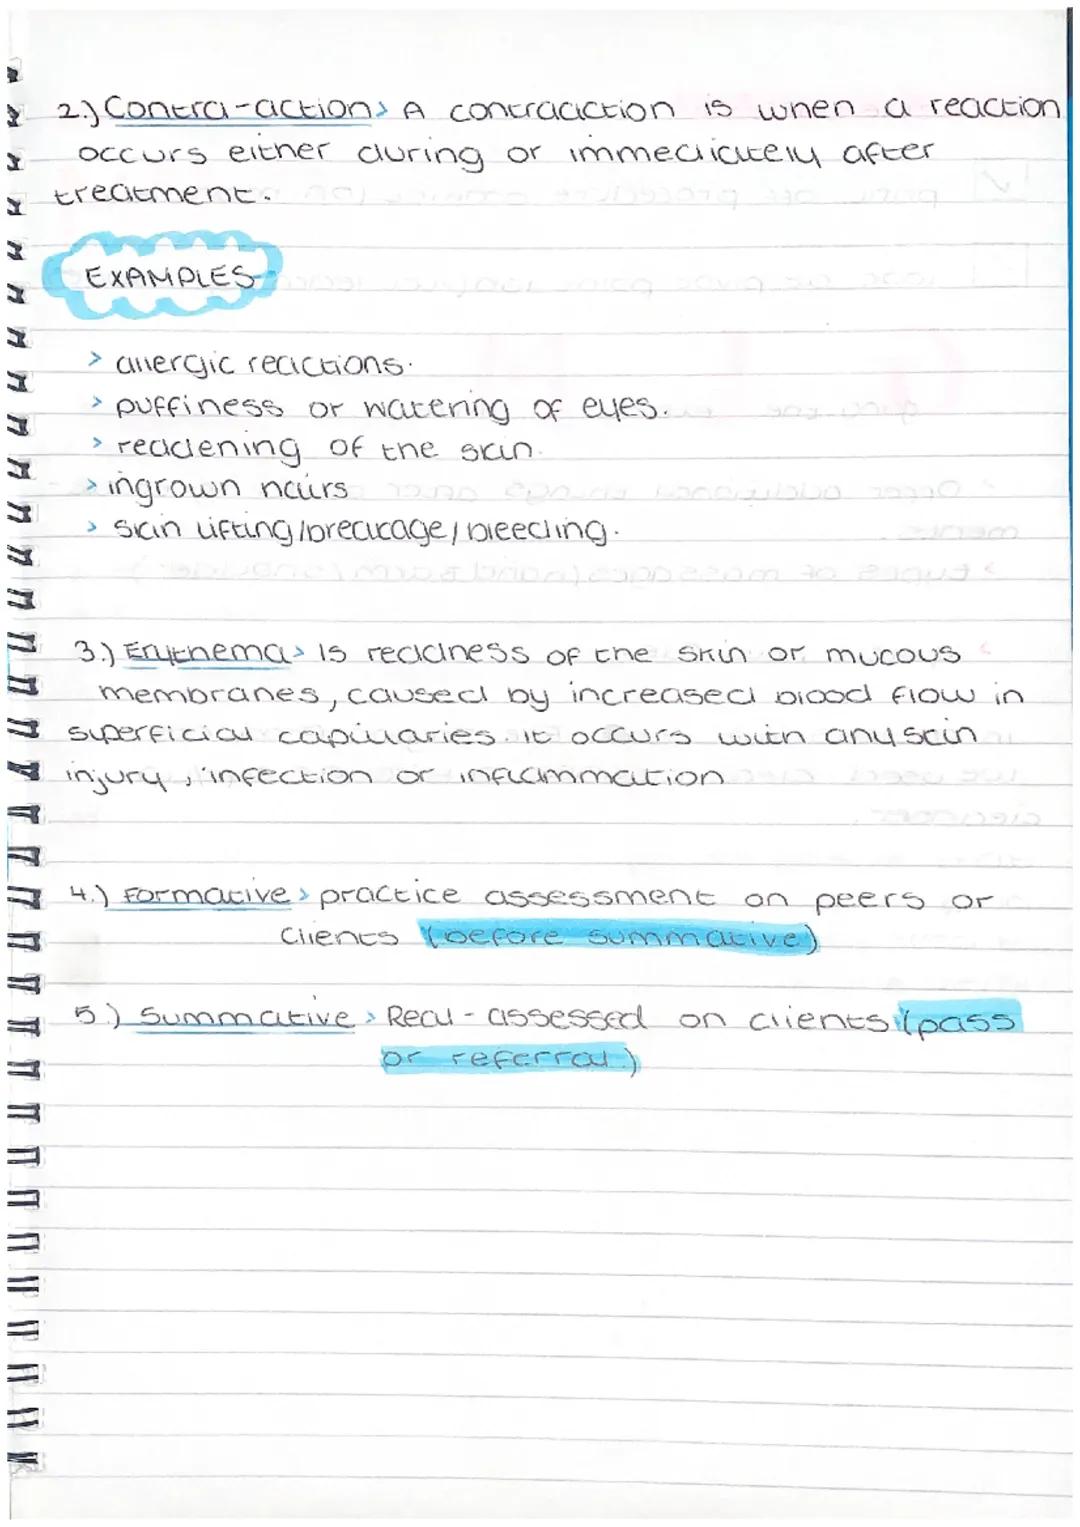 2.) Contra-action> A contraaction is when a reaction
occurs either during or immediately after
treatment.
EXAMPLES
> allergic reactions.
> puffiness or watering of eyes.
> readdening of the skin.
> ingrown hairs
> skin lifting/breakage/bleeding.
3.) Erythema> is redness of the skin or mucous
membranes, caused by increased blood flow in
superficial capillaries. It occurs with any skin
injury, infection or inflammation
4.) Formative> practice assessment on peers or
clients (before summative)
5.) Summative> Real-assessed on clients (pass
or referral.)